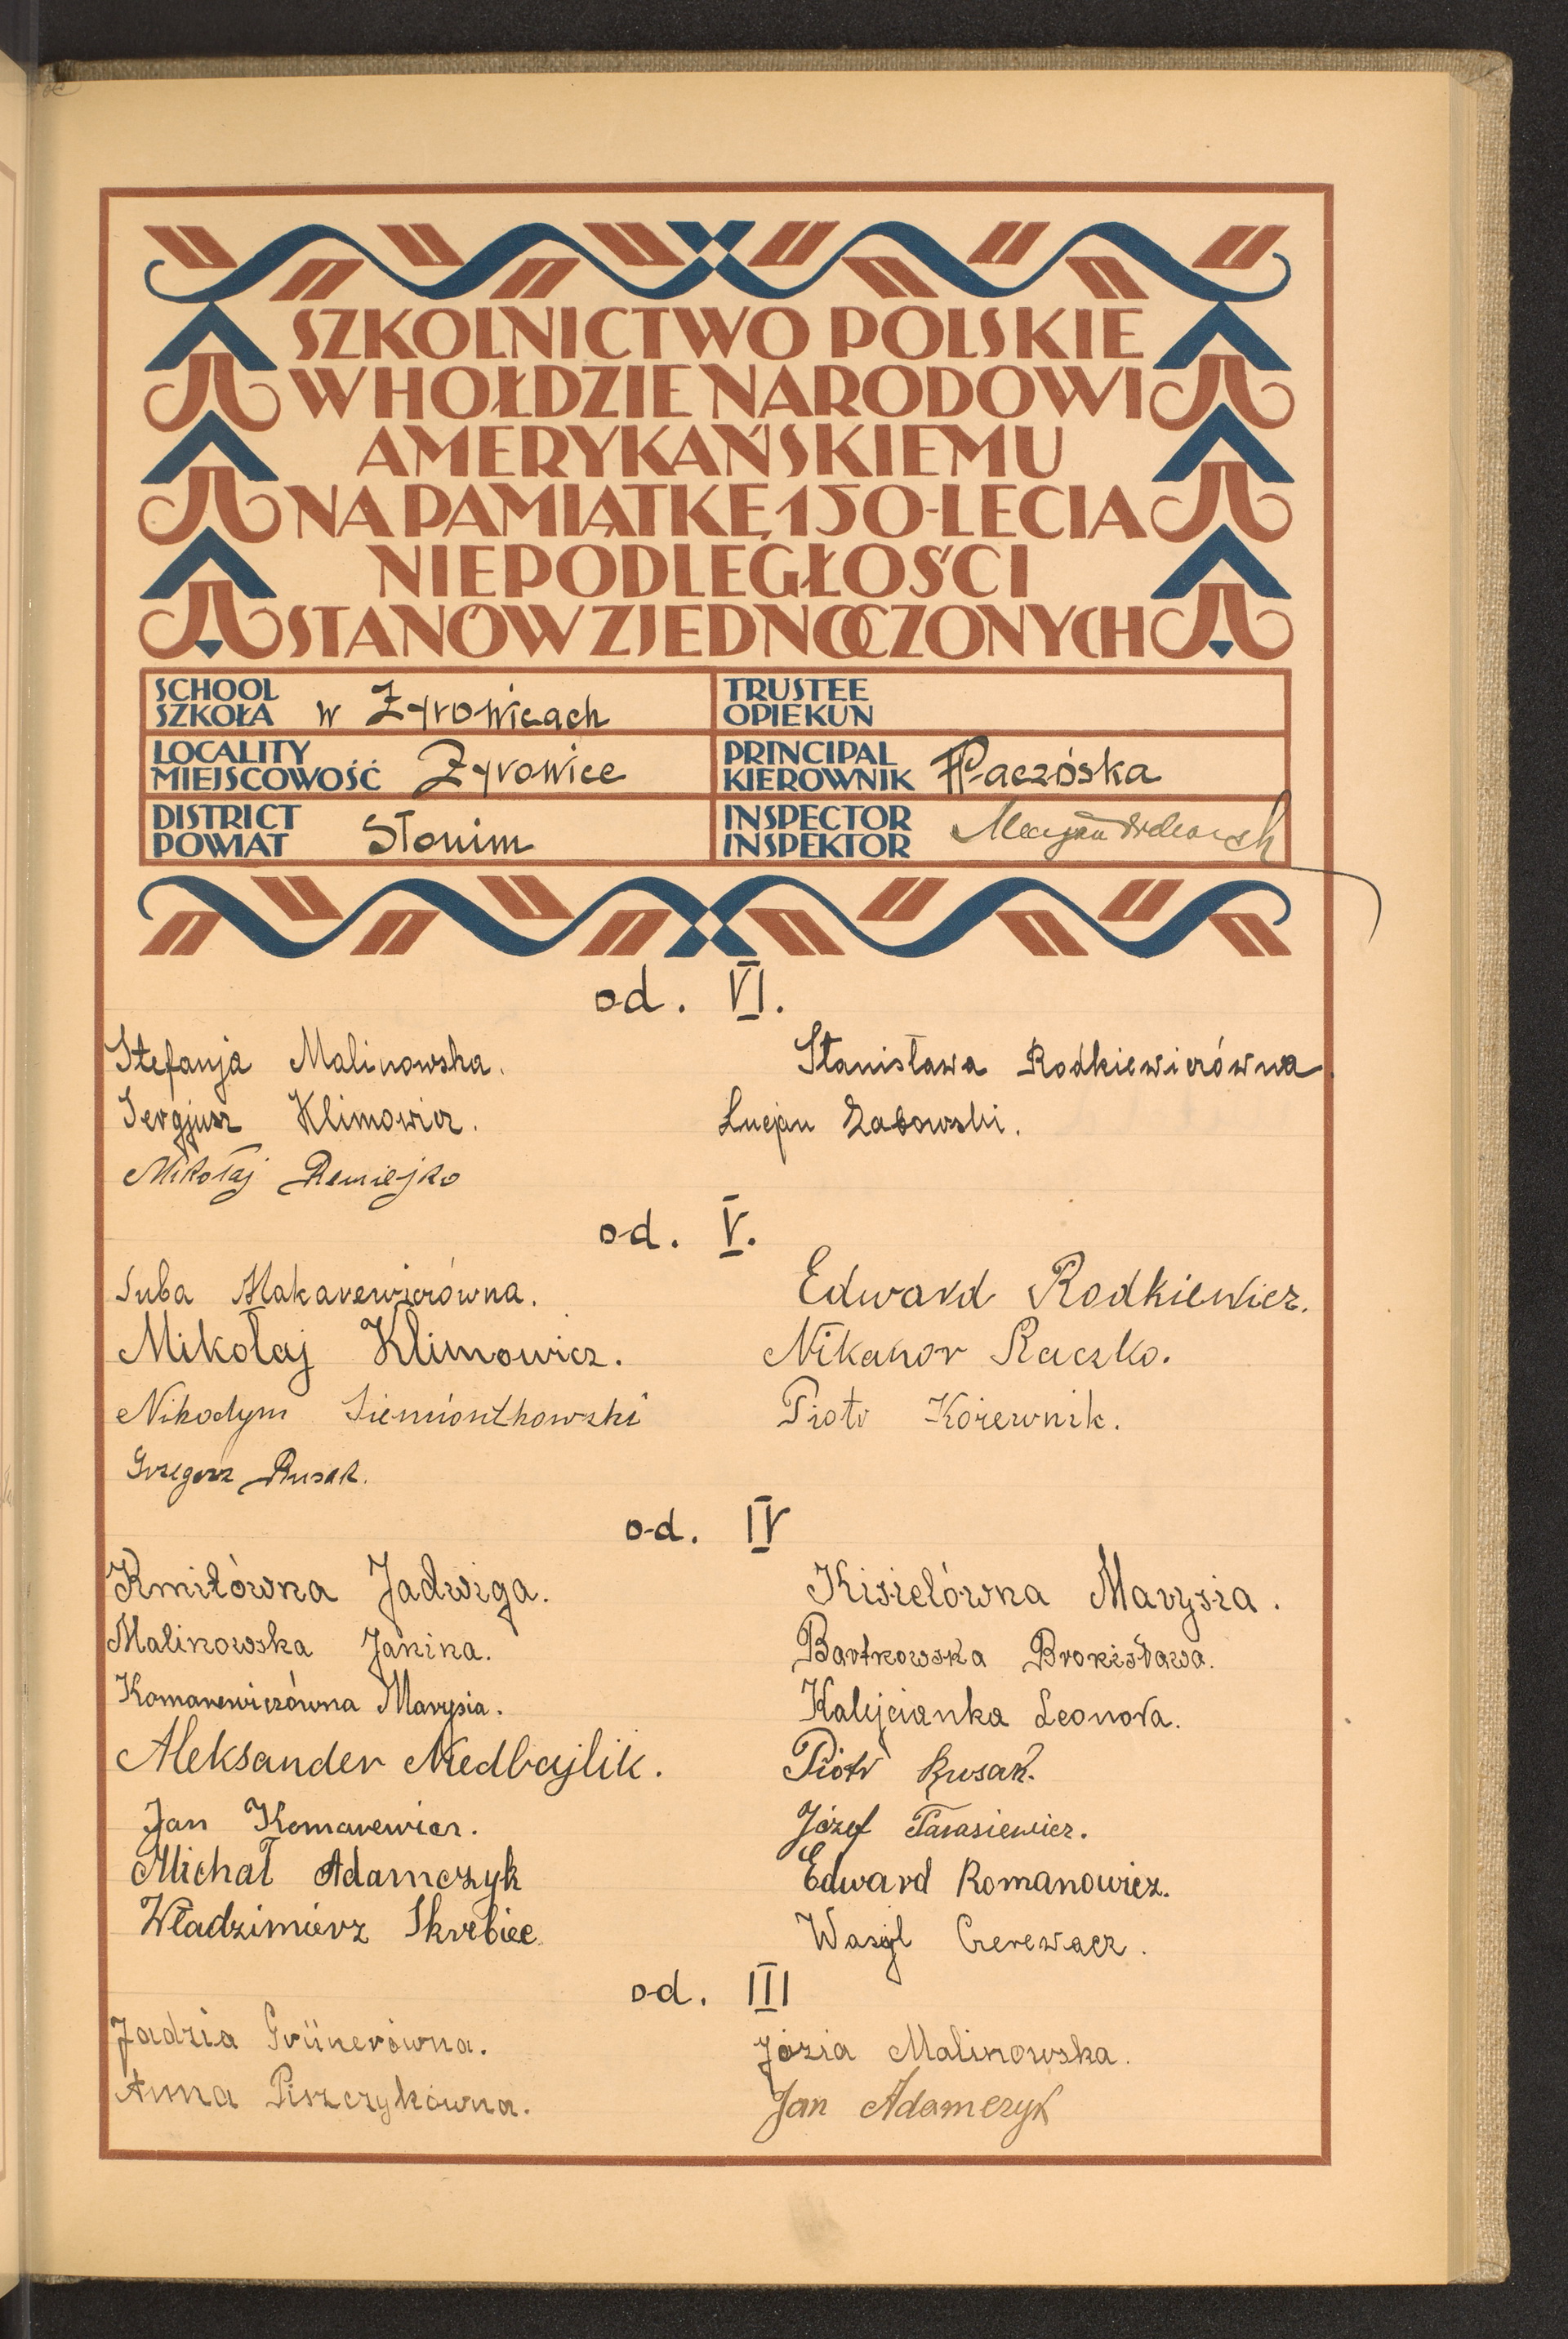 SZKOLNICTWO POLSKIE
W HOŁDZIE NARODOWI
AMERYKAŃSKIEMU
NA PAMIĄTKĘ 150-LECIA
NIEPODLEGŁOŚCI
STANÓW ZJEDNOCZONYCH
SCHOOL
SZKOŁA w Żyrowicach
TRUSTEE
OPIEKUN
LOCALITY
MIEJSCOWOŚĆ Żyrowice
PRINCIPAL
KIEROWNIK Paczóska
DISTRICT
POWIAT Słonim
INSPECTOR
INSPEKTOR
od. VI.
Stefanja Malinowska. Stanisława Rodkiewiczówna
Sergjusz Klimowicz. Lucjan Żabowski.
Mikołaj Remiejko
od. V.
Luba Makarewiczówna. Edward Rodkiewicz.
Mikołaj Klimowicz. Nikanor Raczko.
Nikodym Siemiontkowski Piotr Kożewnik.
Grzegorz Rusak.
od. IV
Kmitówna Jadwiga. Kisielówna Marysia.
Malinowska Janina. Bartnowska Bronisława.
Komarewiczówna Marysia. Kalejcianka Leonora.
Aleksander Niedbajlik. Piotr Rusak.
Jan Komarewicz. Józef Tarasiewicz.
Michał Adamczyk Edward Romanowicz.
Władzimierz Skrebiec Wasyl Czerewacz.
od. III
Jadzia Grünerówna. Józia Malinowska.
Anna Piszczykówna. Jan Adamczyk